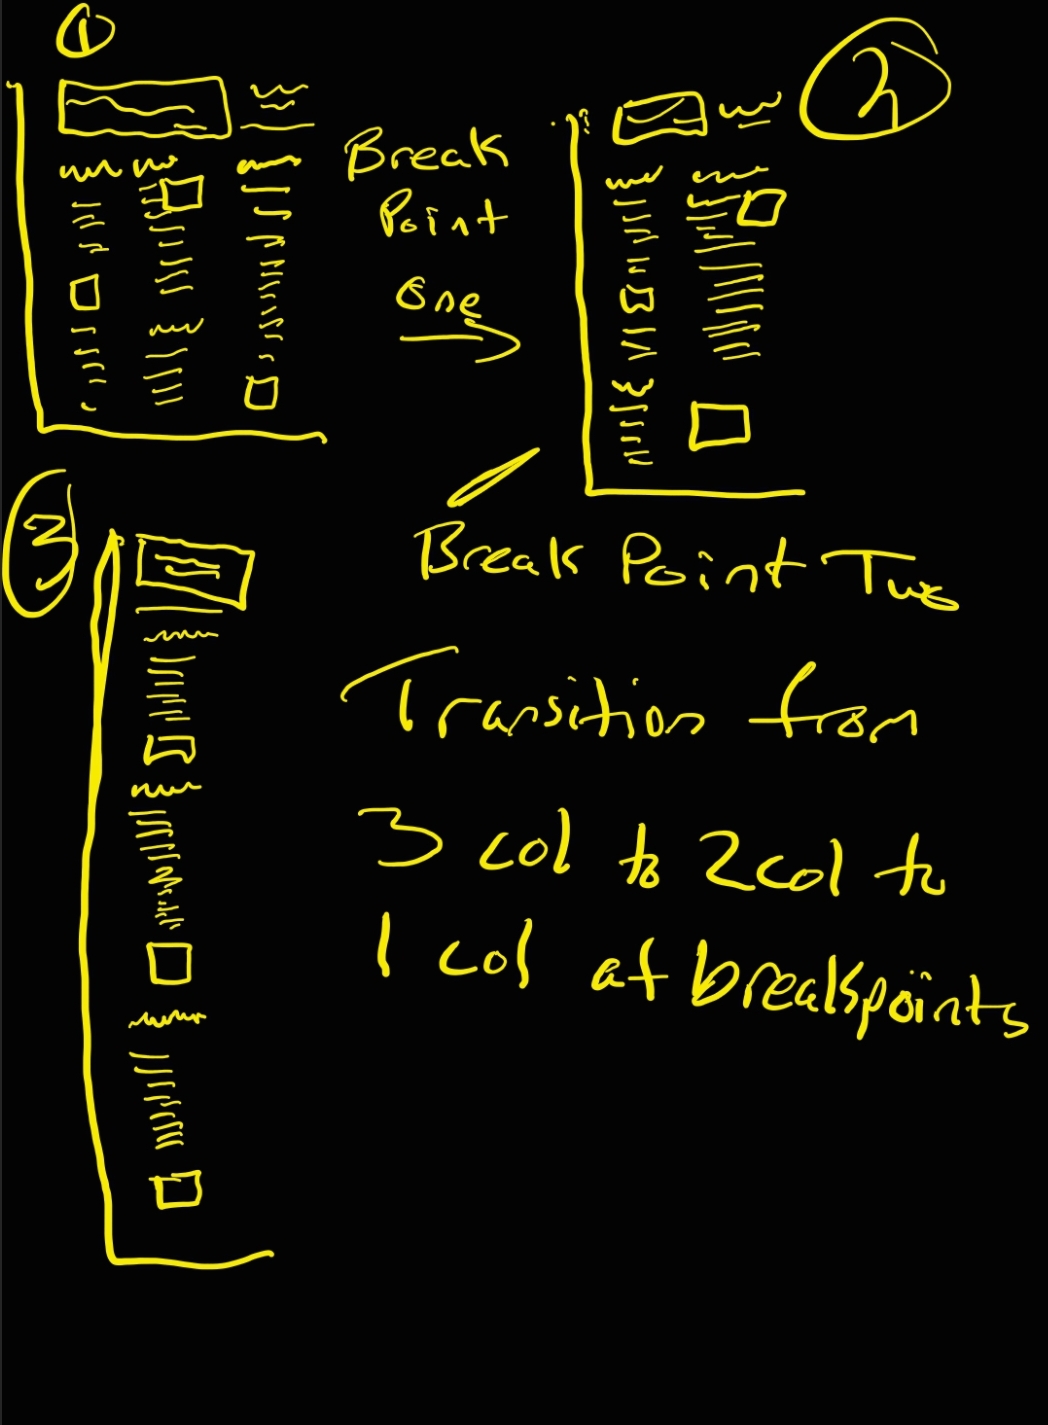 1
2
Break
Point
One
3
Break Point Two
Transition from
3 col to 2 col to
1 col at breakpoints